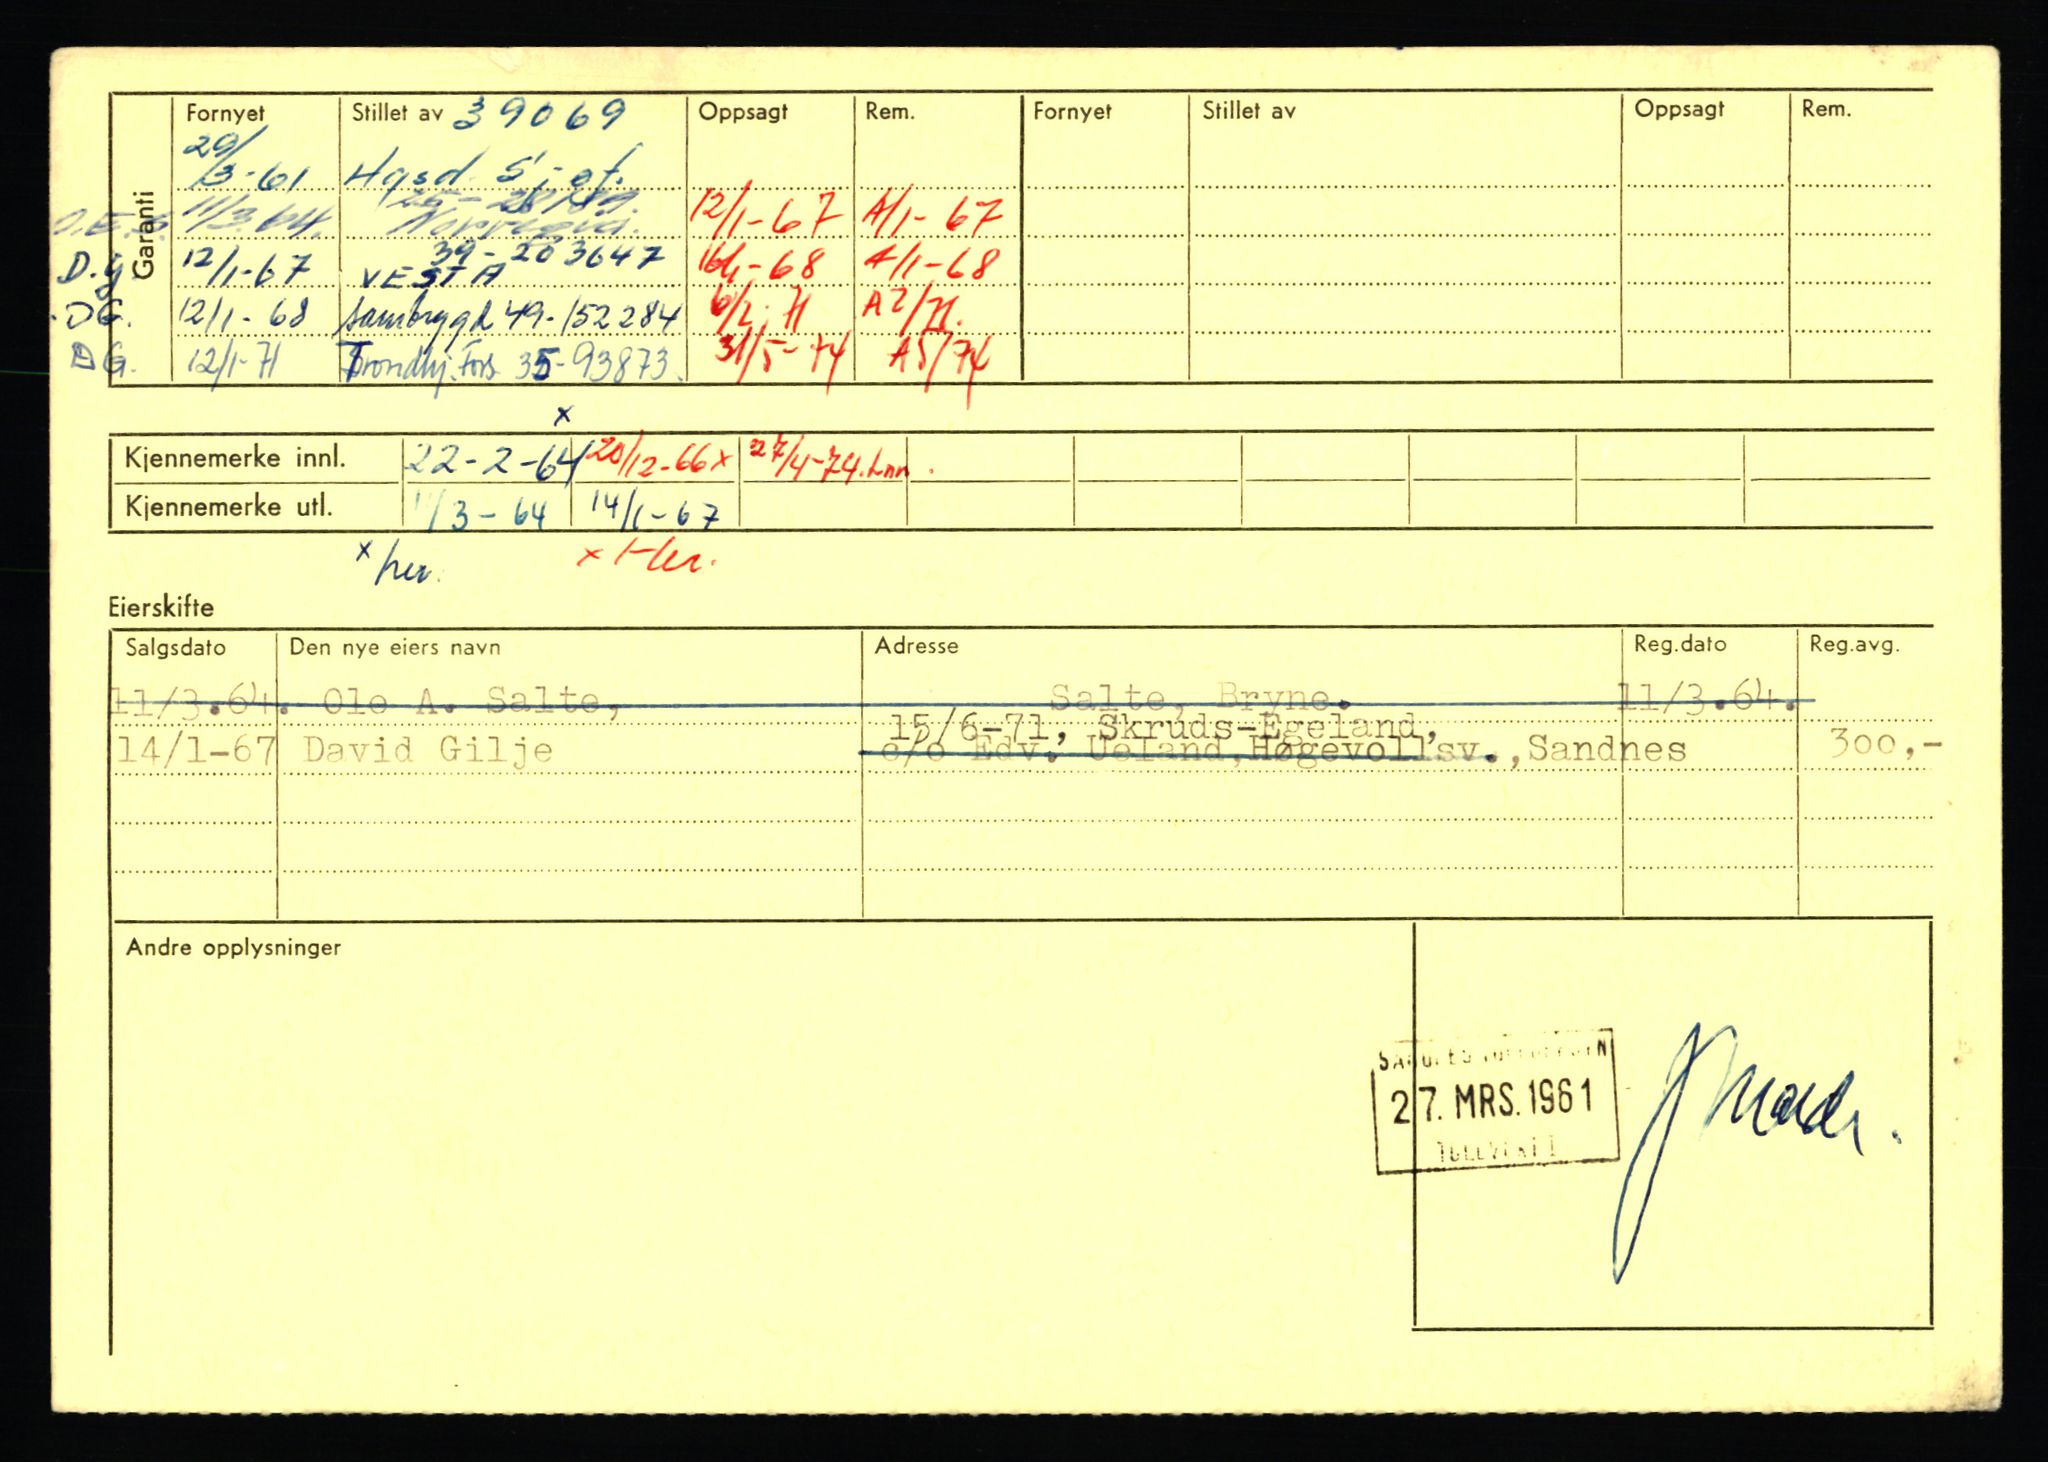 Garanti
Fornyet Stillet av 39069 Oppsagt Rem. Fornyet Stillet av Oppsagt Rem.
29/3-61
11/3.64. 12/1-67 A/1-67
D.G 12/1-67 39-203647 VESTA 16/1-68 A/1-68
DG. 12/1-68 Sambrygd 49-152284 A2/71.
DG. 12/1-71 Trondhj. Fors 35-93873. 31/5-74 A5/74
x
Kjennemerke innl. 22-2-64 20/12-66x 27/4-74.
Kjennemerke utl. 11/3-64 14/1-67
x her. x
Eierskifte
Salgsdato Den nye eiers navn Adresse Reg.dato Reg.avg.
11/3.64. Ole A. Salte, Salte, Bryne. 11/3.64.
15/6-71, Skruds-Egeland,
14/1-67 David Gilje c/o Edv. Ueland,Høgevollsv.,Sandnes 300,-
Andre opplysninger
27. MRS. 1961